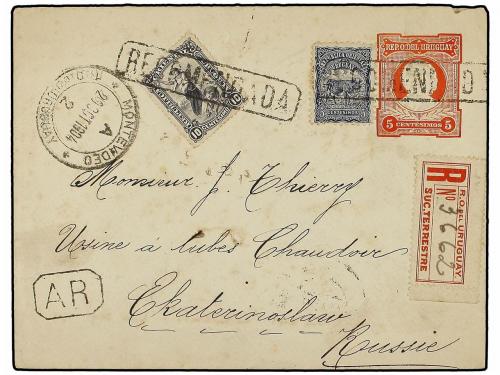 RECOMENDADA
REP. DEL URUGUAY
5 CENTÉSIMOS 5
MONTEVIDEO
A
26 OCT 1904
2
Monsieur J. Thierry
Usine à tubes Chaudoir
Ekaterinoslaw
Russie
AR
R
R.O. DEL URUGUAY
No 3662
SUC. TERRESTRE